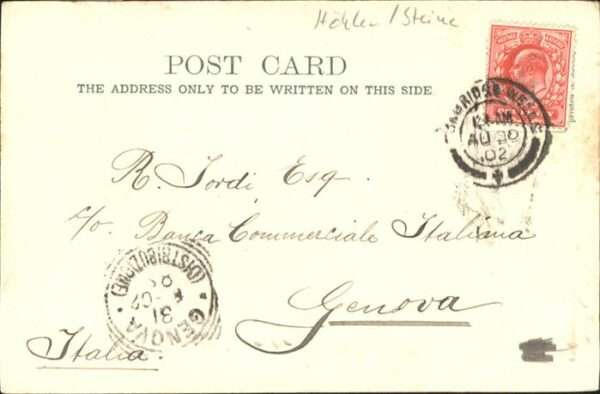 Höhlen / Steine
POST CARD
THE ADDRESS ONLY TO BE WRITTEN ON THIS SIDE.
TUNBRIDGE WELLS
AU 30
02
R. Tordi Esq.
c/o Banca Commerciale Italiana
Genova
Italia.
GENOVA
(DISTRIBUZIONE)
31
02